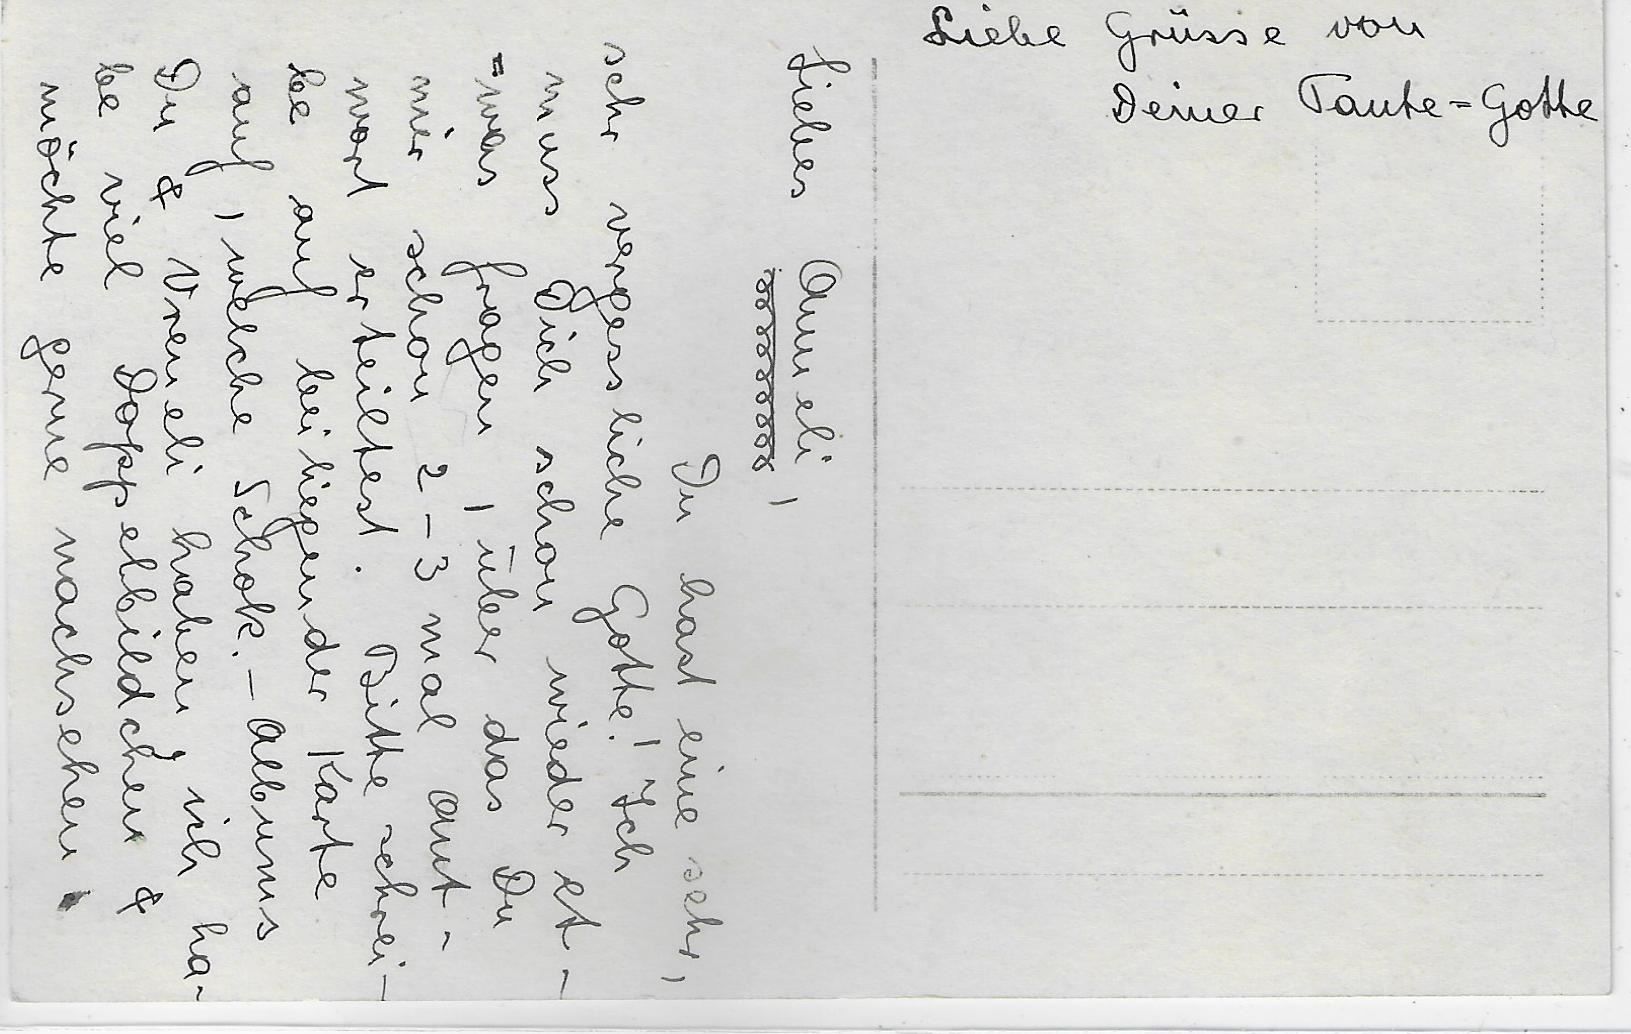 Liebes Anneli,
Du hast eine sehr,
sehr vergessliche Gotte! Ich
muss Dich schon wieder et-
=was fragen, über das Du
mir schon 2-3 mal Ant-
wort erteiltest. Bitte schrei-
be auf beiliegender Karte
auf, welche Schok.-Albums
Du & Vreneli haben, ich ha-
be viel Doppelbildchen &
möchte gerne nachsehen.
Liebe Grüsse von
Deiner Tante=Gotte